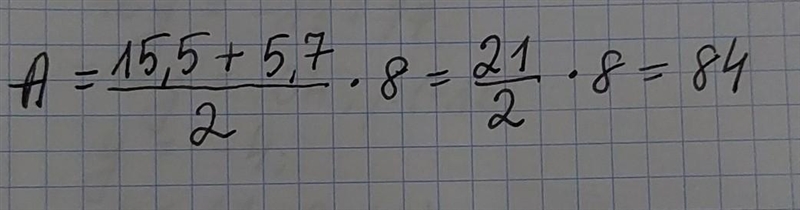 A = \frac{15,5 + 5,7}{2} · 8 = \frac{21}{2} · 8 = 84